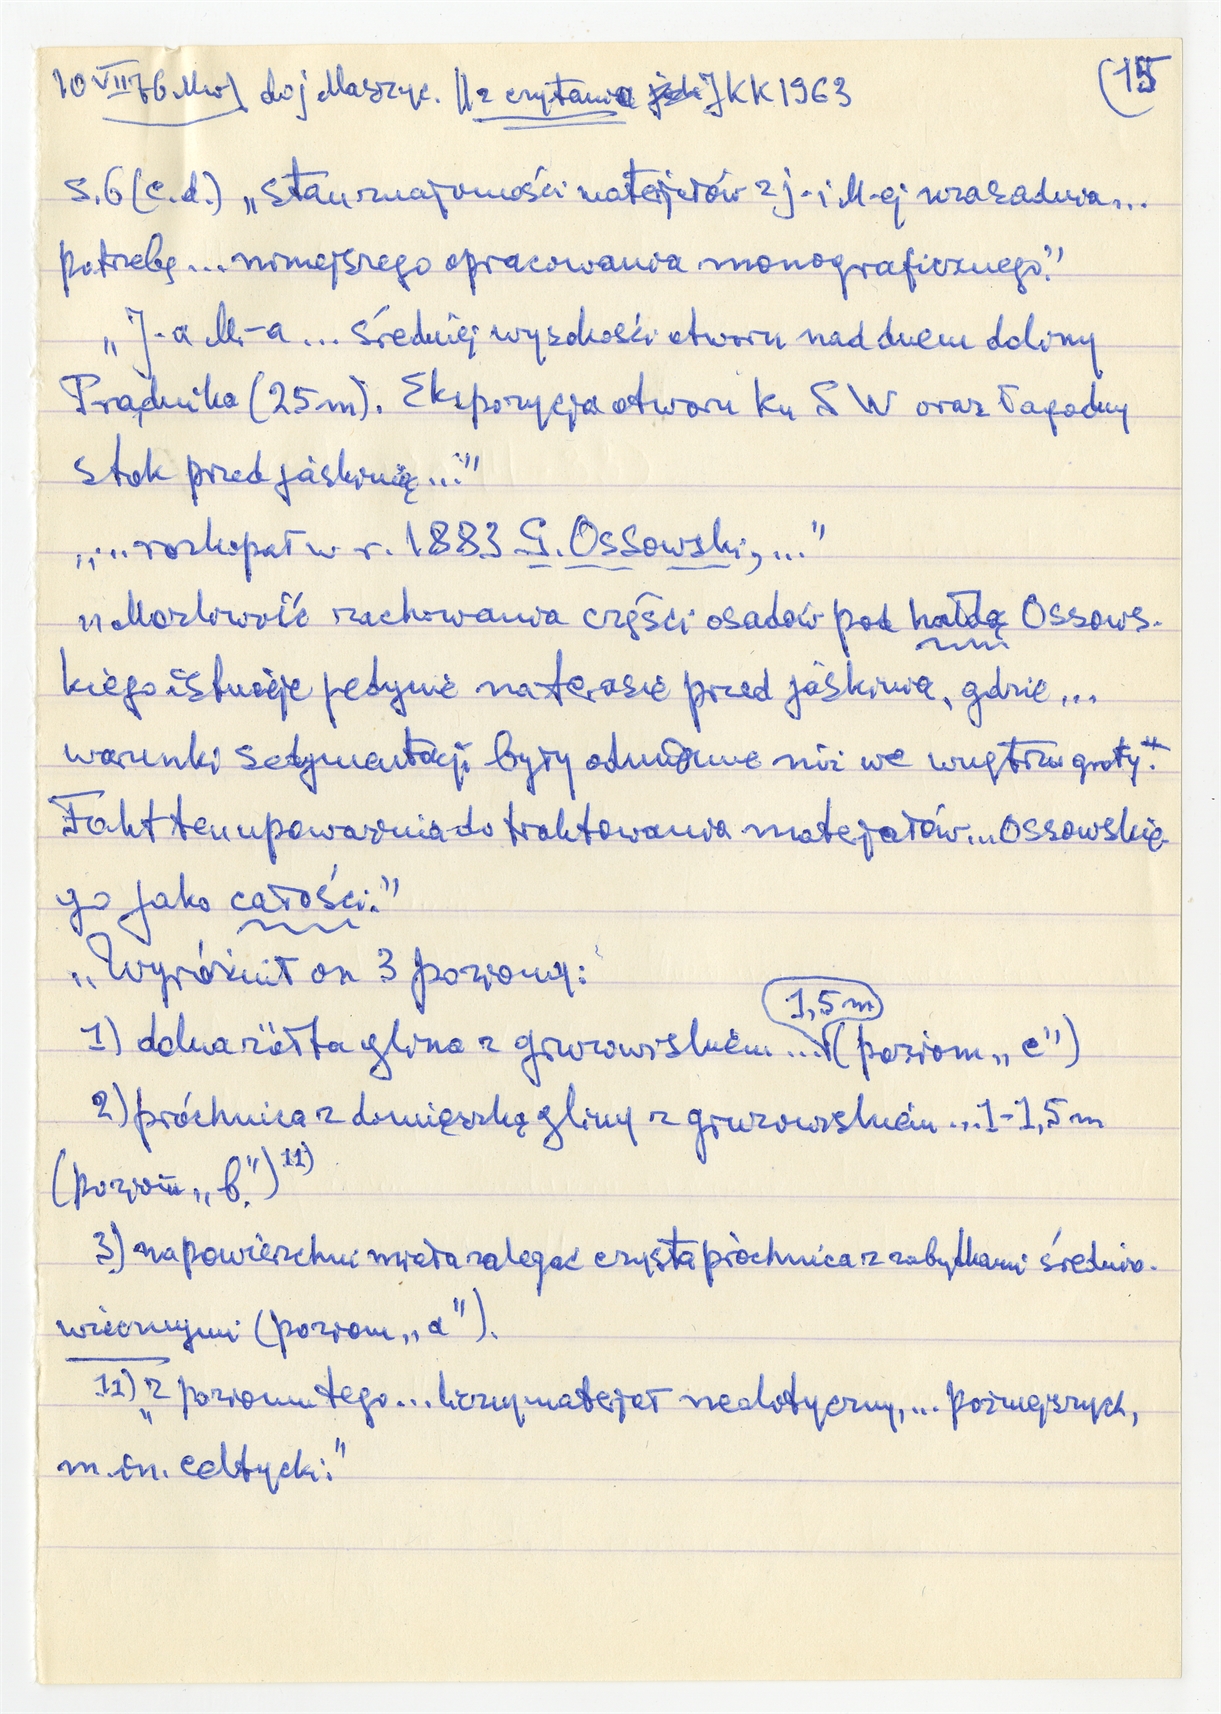 10 VII 76 Mw) do j Maszyc. || z czytania JKK 1963 (15
s. 6 (c.d.) „stan znajomości materjałów z j-i M-ej uzasadnia...
potrzebę ... niniejszego opracowania monograficznego."
„J-a M-a ... średniej wysokości otworu nad dnem doliny
Prądnika (25 m). Ekspozycja otworu ku SW oraz łagodny
stok przed jaskinią ..."
„... rozkopał w r. 1883 G. Ossowski, ..."
„Możliwość zachowania części osadów pod hałdą Ossows-
kiego istnieje jedynie na terasie przed jaskinią, gdzie ...
warunki sedymentacji były odmienne niż we wnętrzu groty."
Fakt ten upoważnia do traktowania materjałów ... Ossowskie-
go jako całości."
„Wyróżnił on 3 poziomy:
1,5 m
1) dolna żółta glina z gruzowiskiem ... (poziom „c")
2) próchnica z domieszką gliny z gruzowiskiem ... 1-1,5 m
(poziom „b.") 11)
3) na powierzchni miała zalegać czysta próchnica z zabytkami średnio-
wiecznymi (poziom „a").
11) „z poziomu tego ... liczny materjał neolityczny, ... późniejszych,
m. in. celtycki."